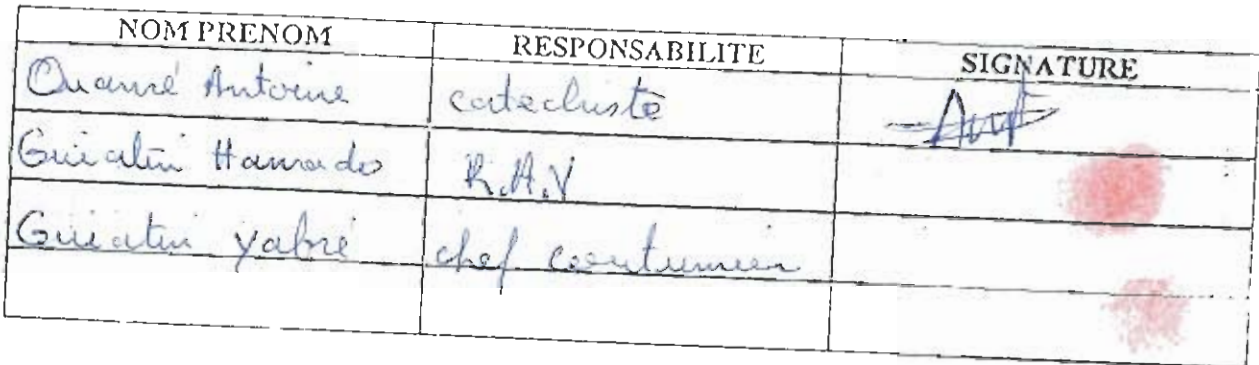 NOM PRENOM RESPONSABILITE SIGNATURE
Ouamé Antoine catechiste
Guiatin Hamado R.A.V
Guiatin Yabré chef coutumier